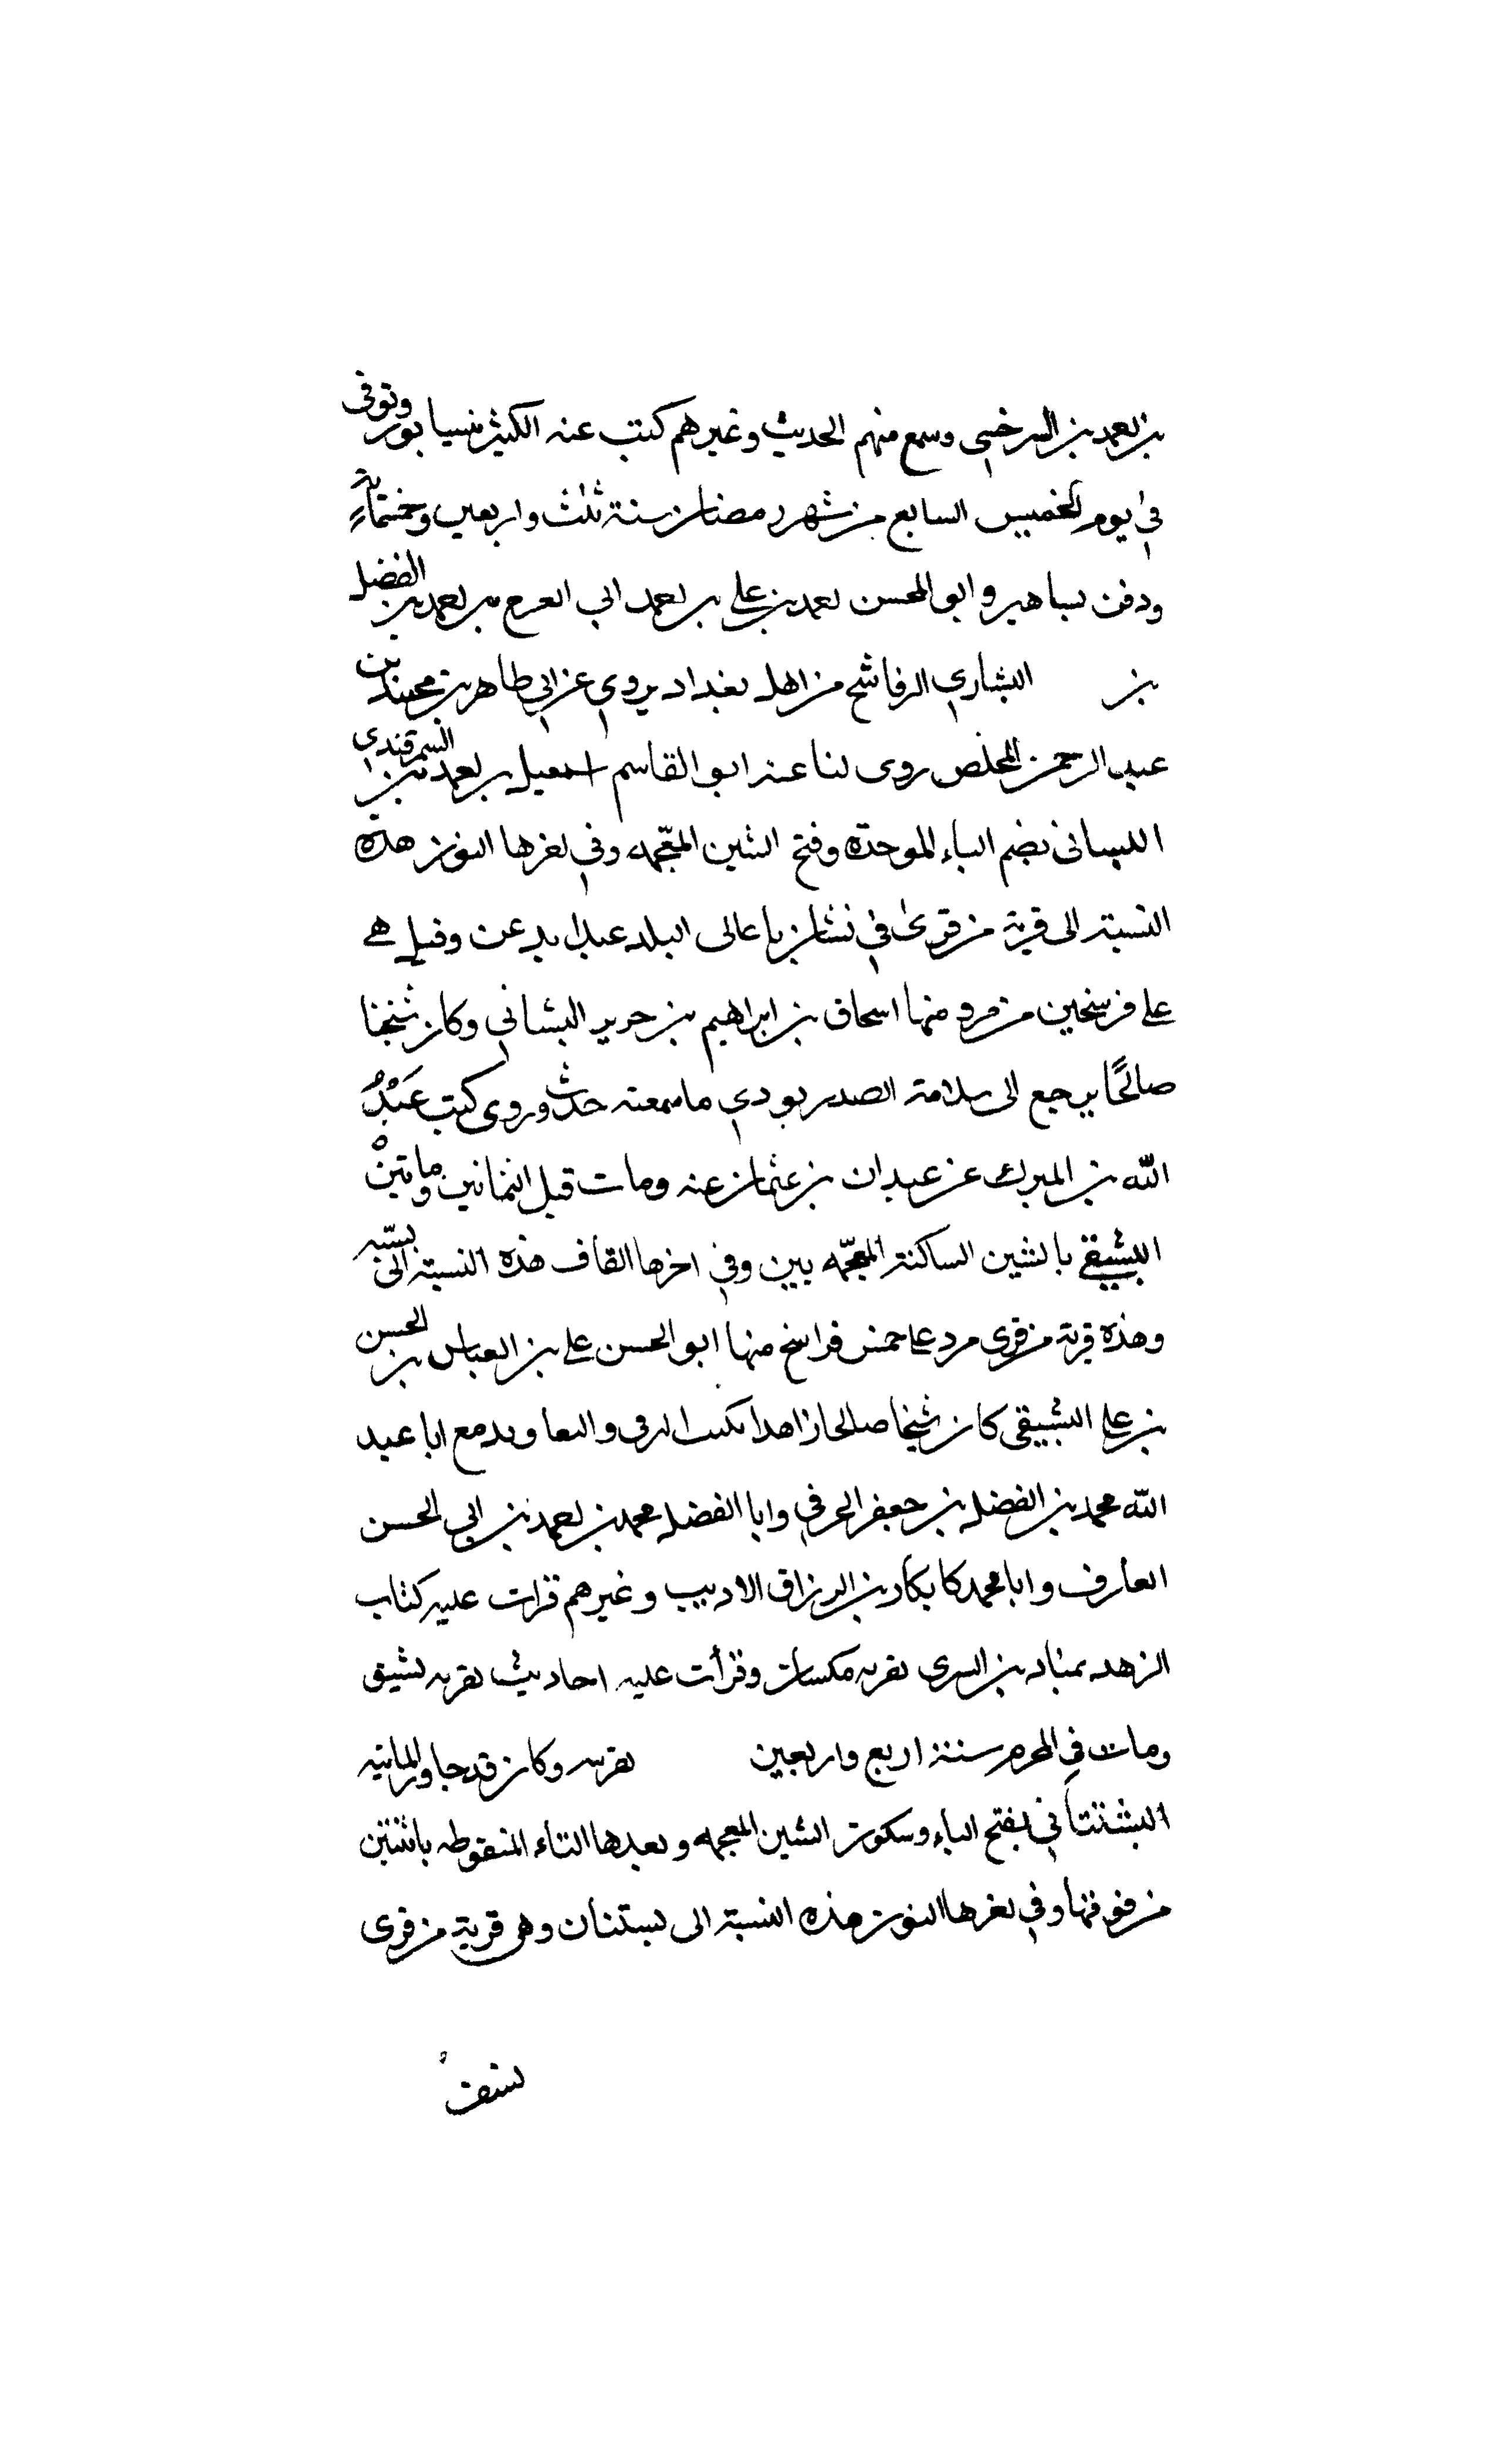 بن احمد بن السرخسي وسمع منهم الحديث وغيرهم كتب عنه الكثير بنيسابور وتوفى
في يوم الخميس السابع من شهر رمضان سنة ثلث واربعين وخمسمائة
ودفن بساهير وابو الحسن احمد بن علي بن احمد ابي الفرج بن احمد بن الفضل
بن البشاري الرفاشي من اهل بغداد يروي عن ابي طاهر بن محمد بن
عبد الرحمن المخلص روى لنا عنه ابو القاسم اسمعيل بن احمد بن السمرقندي
البشاني بضم الباء الموحدة وفتح الشين المعجمة وفي اخرها النون هذه
النسبة الى قرية من قرى في نشان باعالى البلد وقيل هي
على فرسخين من مرو منها اسحاق بن ابراهيم بن جرير البشاني وكان شيخا
صالحًا يرجع الى سلامة الصدر يودي ما سمعته حدث وروى كتب عَبْدُ
الله بن المبرك عن عبدان بن عثمان عنه ومات قبل الثمانين ومايتين
البشيقي بالشين الساكنة المعجمة بين وفي اخرها القاف هذه النسبة الى بشيه
وهذه قرية من قرى مرو على خمس فراسخ منها ابو الحسن علي بن العباس بن الحسن
بن علي البشيقي كان شيخا صالحا زاهدا يكتب الرقى والتعاويذ سمع ابا عبد
الله محمد بن الفضل بن جعفر الخرقي وابا الفضل محمد بن احمد بن ابي الحسن
العارف وابا محمد كابكار بن الرزاق الاديب وغيرهم قرات عليه كتاب
الزهد بن السري بقرية مكسان وقرأت عليه احاديث بقرية بشيق
ومات في المحرم سنة اربع واربعين بقريته وكان قد جاور المايه
البشتناني بفتح الباء وسكون الشين المعجمه وبعدها التاء المنقوطه باثنتين
من فوقها وفي اخرها النون هذه النسبة الى بستنان وهي قرية من قرى
نسف